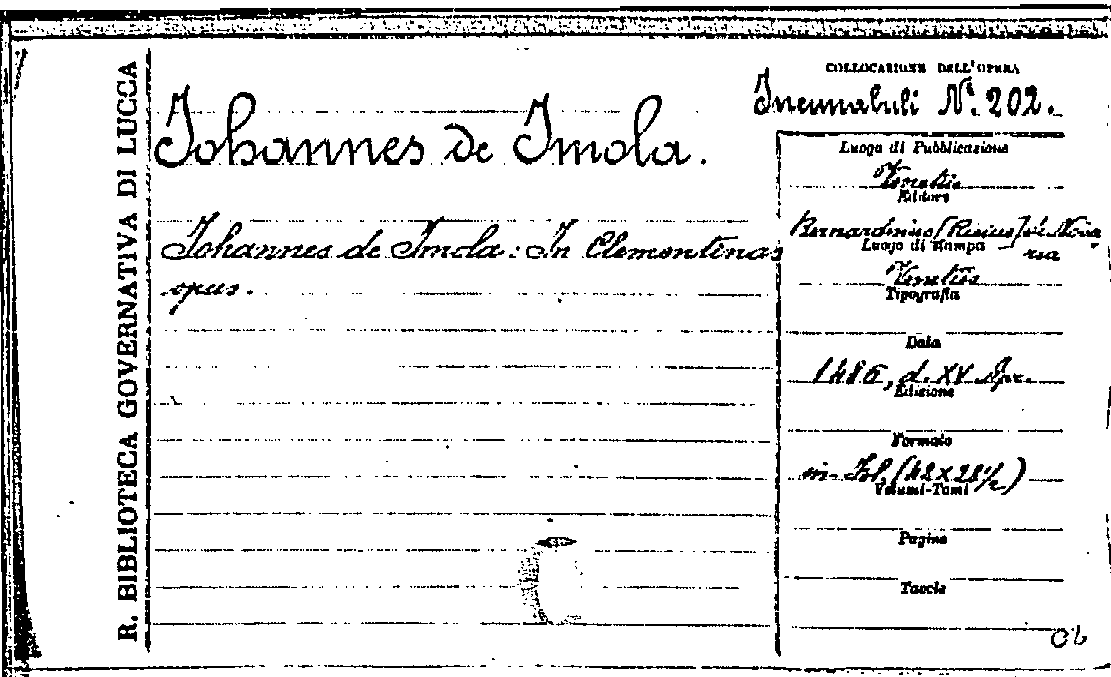 R. BIBLIOTECA GOVERNATIVA DI LUCCA
Johannes de Imola.
Johannes de Imola: In Clementinas
opus.
COLLOCAZIONE DELL'OPERA
Incunabuli N°. 202.
Luogo di Pubblicazione
Venetiis
Editore
Bernardinus [Rizius] de Nova
ria
Luogo di Stampa
Venetiis
Tipografia
Data
1486, d. XV Apr.
Edizione
Formato
in-Fol. (42x28½)
Volumi-Tomi
Pagine
Tavole